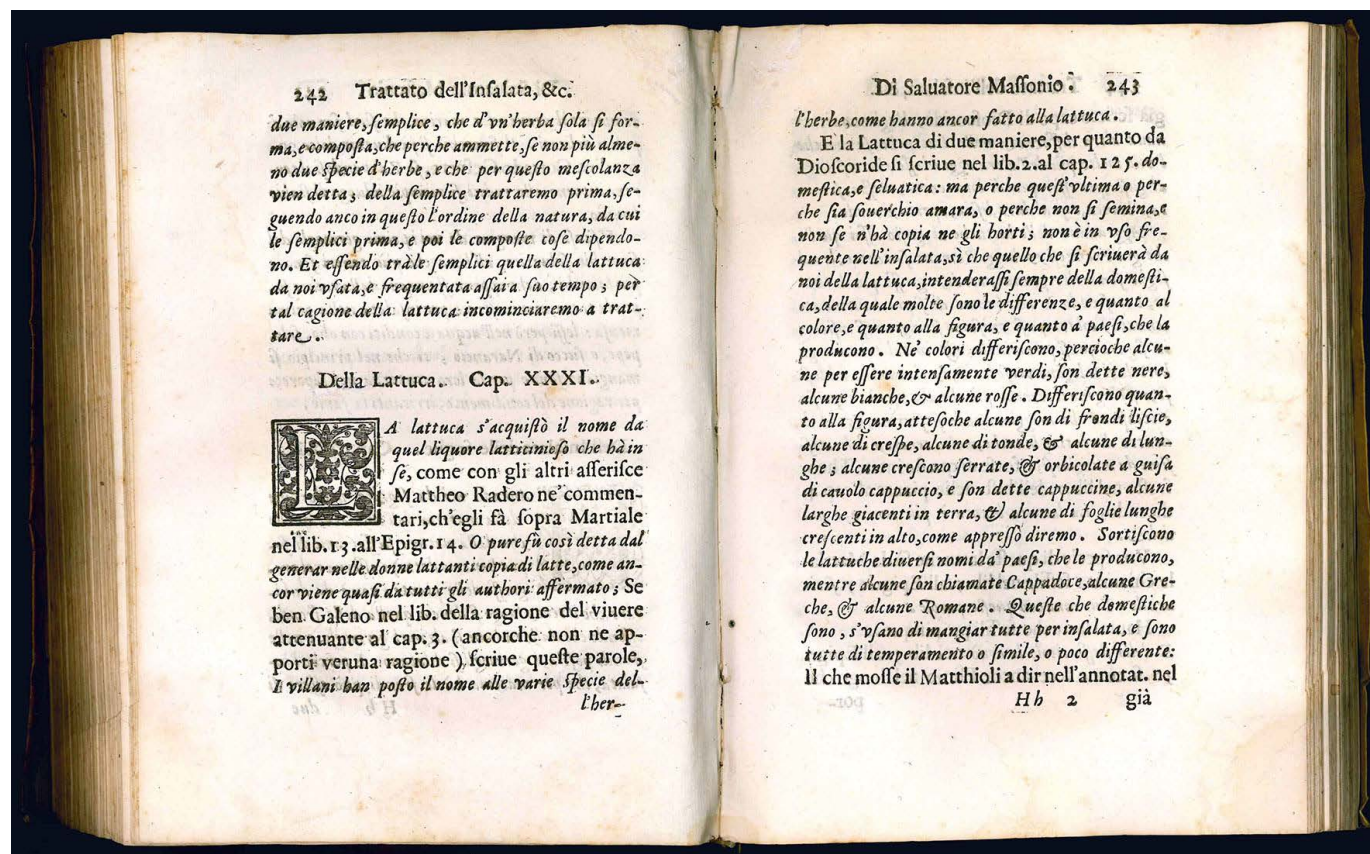 242 Trattato dell'Inſalata, &c.
due maniere, ſemplice, che d'vn'herba ſola ſi for-
ma, e compoſta, che perche ammette, ſe non più alme-
no due ſpecie d'herbe, e che per queſto meſcolanza
vien detta; della ſemplice trattaremo prima, ſe-
guendo anco in queſto l'ordine della natura, da cui
le ſemplici prima, e poi le compoſte coſe dipendo-
no. Et eſſendo trà le ſemplici quella della lattuca
da noi vſata, e frequentata aſſai a ſuo tempo; per
tal cagione della lattuca incominciaremo a trat-
tare.
Della Lattuca. Cap. XXXI.
LA lattuca s'acquiſtò il nome da
quel liquore latticinioſo che hà in
ſe, come con gli altri aſſeriſce
Mattheo Radero ne' commen-
tari, ch'egli fà ſopra Martiale
nel lib. 13. all'Epigr. 14. O pure fù così detta dal
generar nelle donne lattanti copia di latte, come an-
cor viene quaſi da tutti gli authori affermato; Se
ben Galeno nel lib. della ragione del viuere
attenuante al cap. 3. (ancorche non ne ap-
porti veruna ragione) ſcriue queſte parole,
I villani han poſto il nome alle varie ſpecie del-
l'her-
Di Saluatore Maſſonio. 243
l'herbe, come hanno ancor fatto alla lattuca.
E la Lattuca di due maniere, per quanto da
Dioſcoride ſi ſcriue nel lib. 2. al cap. 125. do-
meſtica, e ſeluatica: ma perche queſt'vltima o per-
che ſia ſouerchio amara, o perche non ſi ſemina, e
non ſe n'hà copia ne gli horti; non è in vſo fre-
quente nell'inſalata, sì che quello che ſi ſcriuerà da
noi della lattuca, intenderaſſi ſempre della domeſti-
ca, della quale molte ſono le differenze, e quanto al
colore, e quanto alla figura, e quanto à paeſi, che la
producono. Ne' colori differiſcono, percioche alcu-
ne per eſſere intenſamente verdi, ſon dette nere,
alcune bianche, & alcune roſſe. Differiſcono quan-
to alla figura, atteſoche alcune ſon di frondi liſcie,
alcune di creſpe, alcune di tonde, & alcune di lun-
ghe; alcune creſcono ſerrate, & orbicolate a guiſa
di cauolo cappuccio, e ſon dette cappuccine, alcune
larghe giacenti in terra, & alcune di foglie lunghe
creſcenti in alto, come appreſſo diremo. Sortiſcono
le lattuche diuerſi nomi da' paeſi, che le producono,
mentre alcune ſon chiamate Cappadoce, alcune Gre-
che, & alcune Romane. Queſte che domeſtiche
ſono, s'vſano di mangiar tutte per inſalata, e ſono
tutte di temperamento o ſimile, o poco differente:
Il che moſſe il Matthioli a dir nell'annotat. nel
Hh 2 già